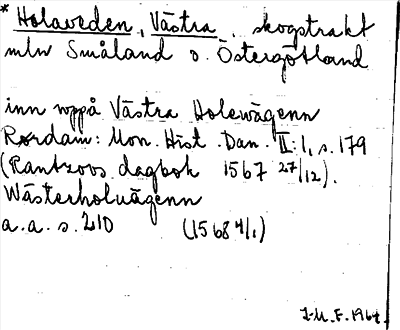 * Holaveden, Västra, skogstrakt
mln Småland o. Östergötland
inn wppå Västra Holewägenn
Rørdam: Mon. Hist. Dan. II:1, s. 179
(Rantzovs dagbok 1567 27/12).
Wästerholuägenn
a.a. s. 210 (1568 4/1)
J-M. F. 1964.